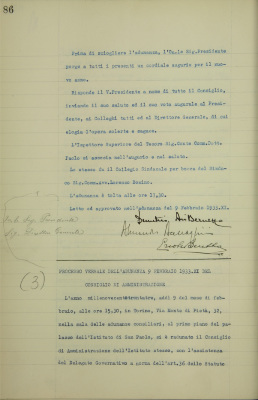 86
Prima di sciogliere l'adunanza, l'On.le Sig.Presidente
porge a tutti i presenti un cordiale augurio per il nuo-
vo anno.
Risponde il V.Presidente a nome di tutto il Consiglio,
inviando il suo saluto ed il suo voto augurale al Presi-
dente, ai Colleghi tutti ed al Direttore Generale, di cui
elogia l'opera solerte e sagace.
L'Ispettore Superiore del Tesoro Sig.Conte Comm.Dott.
Paolo si associa nell'augurio e nel saluto.
Lo stesso fa il Collegio Sindacale per bocca del Sinda-
co Sig.
L'adunanza è tolta alle ore 18,30.
Letto ed approvato nell'adunanza del 9 Febbraio 1933.XI.
(3)
PROCESSO VERBALE DELL'ADUNANZA 9 FEBBRAIO 1933.XI DEL
CONSIGLIO DI AMMINISTRAZIONE
L'anno millenovecentotrentatre, addì 9 del mese di Feb-
braio, alle ore 15.30, in Torino, Via Monte di Pietà, 32,
nella sala delle adunanze consigliari, al primo piano del pa-
lazzo dell'Istituto di San Paolo, si è radunato il Consiglio
di Amministrazione dell'Istituto stesso, con l'assistenza
del Delegato Governativo a norma dell'art.36 dello Statuto